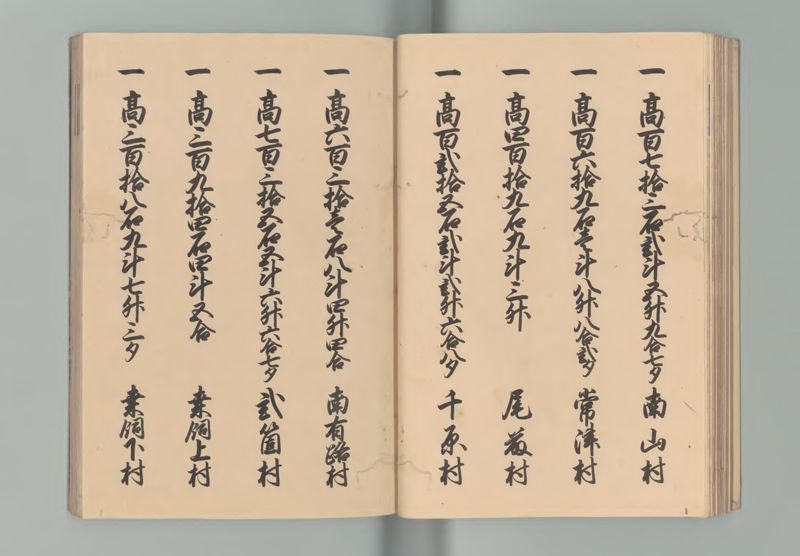 一 高百七拾三石弐斗五升九合七夕 南山村
一 高百六拾九石壱斗八升八合弐夕 常津村
一 高四百拾九石九斗三升 尾藤村
一 高百弐拾五石弐斗弐升六合八夕 千原村
一 高六百三拾壱石八斗四升四合 南有路村
一 高七百三拾五石五斗六升六合七夕 弐箇村
一 高三百九拾四石四斗五合 桑飼上村
一 高三百拾八石九斗七升三夕 桑飼下村